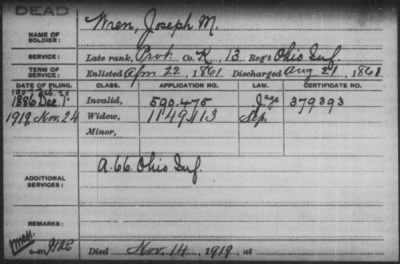 DEAD
NAME OF SOLDIER: Wren, Joseph M.
SERVICE: Late rank, Prvt. Co. K, 13 Reg't Ohio Inf.
TERM OF SERVICE: Enlisted Apr 22, 1861 Discharged Aug 21, 1861
DATE OF FILING. CLASS. APPLICATION NO. LAW. CERTIFICATE NO.
1886 Dec. 1 Invalid, 590.475 379393
1919 Nov. 24 Widow, 1149413 Sep.
Minor,
ADDITIONAL SERVICES: A. 66 Ohio Inf.
REMARKS:
Died Nov. 14, 1919, at